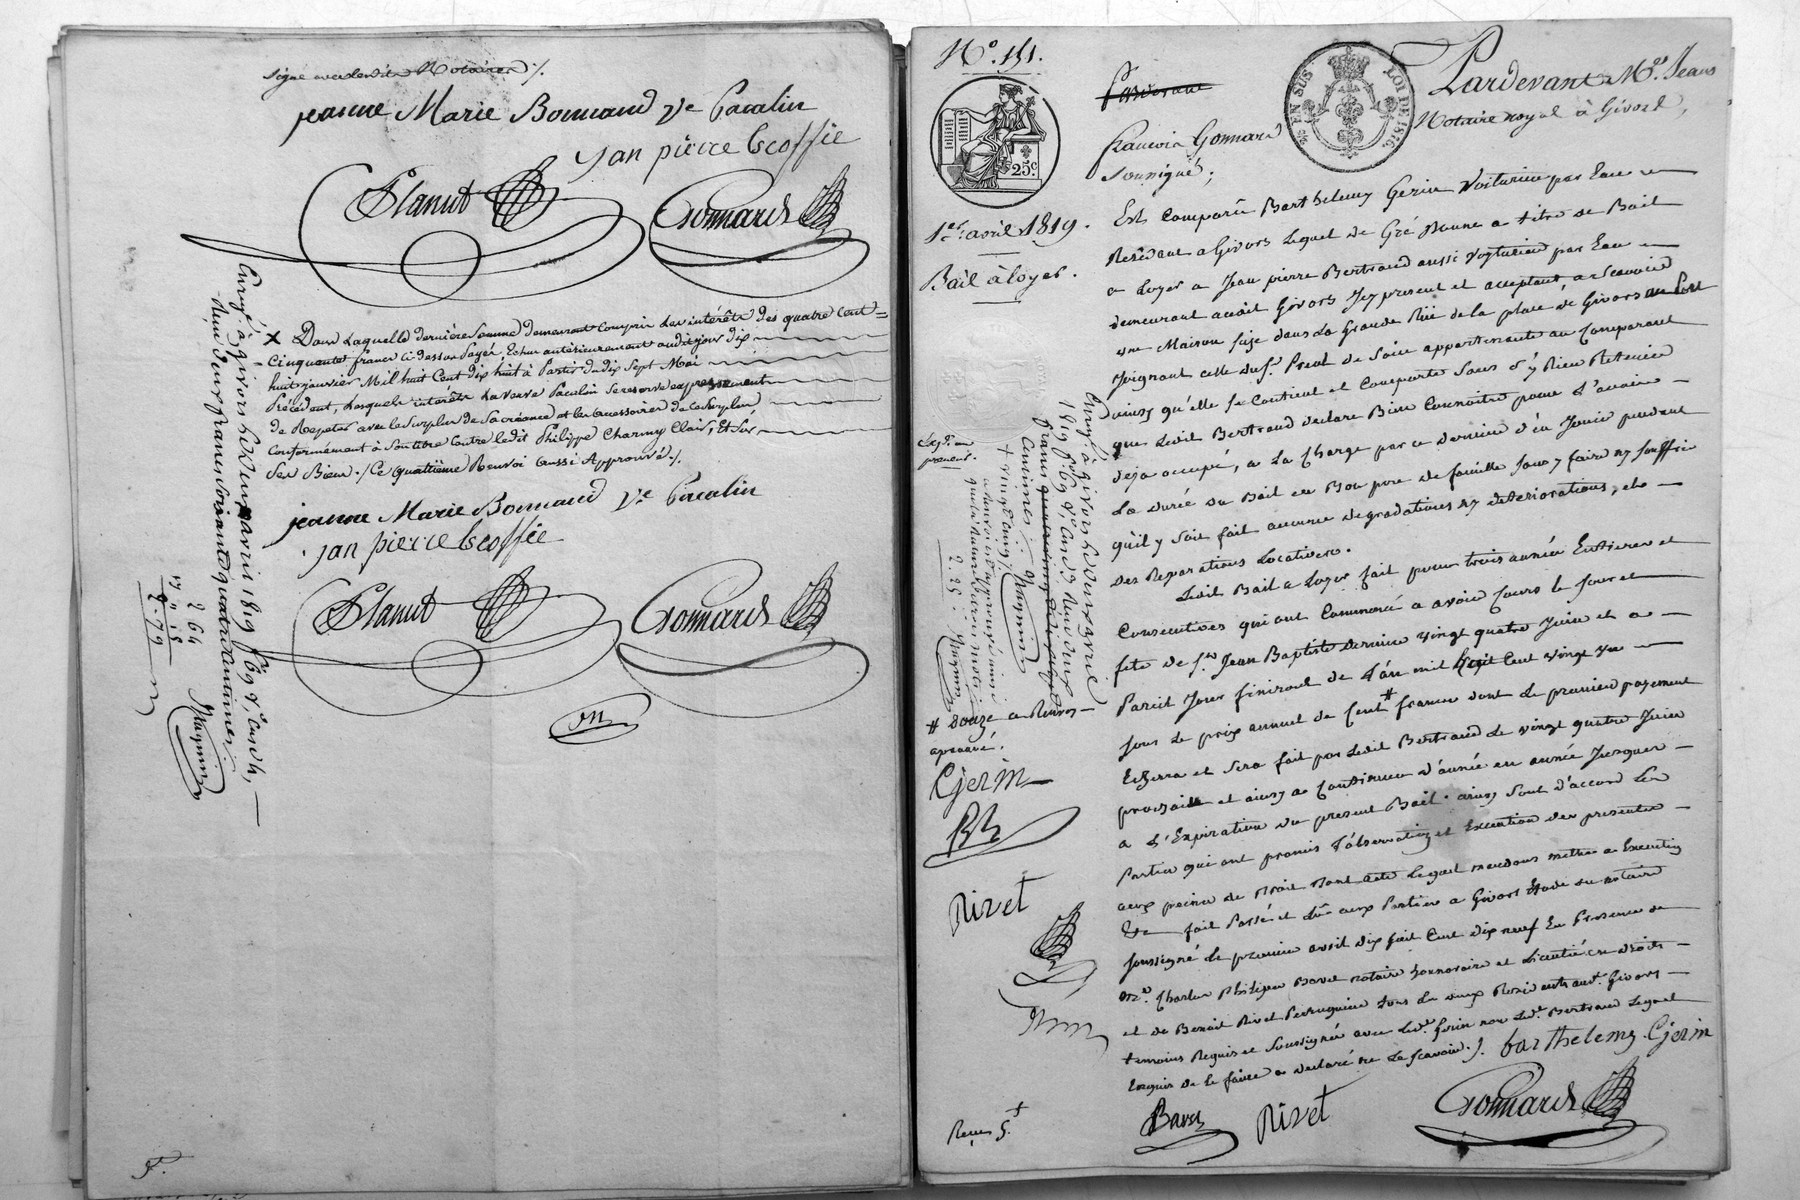 Signé avec lesdits Notaires ./.
jeanne Marie Bonnaud Ve Pacalin
jan pierre Escoffie
Planut
Gonnard
X Dans Laquelle dernière Somme demeurent compris Les intérêts des quatre Cent =
Cinquante francs ci dessus Payés, Echus antérieurement audit jour dix
huit janvier Mil huit Cent dix huit à Partir du dix Sept Mai
Précédent, Lesquels intérêts La veuve Pacalin Se reserve expressement
de Repeter avec le Surplus de Sa créance et les accessoires de ce Surplus
Conformément à Son titre Contre ledit Philippe Charmy Clair, Et Sur,
Ses Biens ./ Ce quatrième Renvoi aussi Approuvé ./.
jeanne Marie Bonnaud Ve Pacalin
jan pierre Escoffie
Planut
Gonnard
Enregé à givors le deux avril 1819 fo 69 Vo
reçu deux francs soixante quatre centimes
2 64
2.79
No. 151.
25c.
1er. avril 1819.
Bail à loyer.
Pardevant
EN SUS
LOI DE 1816.
Pardevant Me. Jean
francois Gonnard
Notaire royal à Givord,
Soussigné,
Est Comparu Barthelemy Gerin Voiturier par Eau
Residant a Givors Lequel de Gré Donne a titre de Bail
a Loyer a Jean pierre Bertrand aussi Voiturier par Eau
demeurant audit Givors Icy present et acceptant, a Scavoir
une Maison Size dans La Grande Rüe de la place de Givors
Joignant celle du Sr. Prost de Soir appartenante au Comparant
ainsy qu'elle Se Contient et Comporte Sans S'y Rien Retenir
que Ledit Bertrand declare Bien Connoitre pour L'avoir
deja occupé, a La Charge par ce dernier d'en Jouir pendant
La durée du Bail en Bon pere de famille Sans y faire ny Souffrir
qu'il y Soit fait aucune degradations ny deteriorations, et
des Reparations Locatives.
Ledit Bail a Loyer fait pour trois années Entieres et
Consecutives qui ont Commencé a avoir Cours le Jour et
fete de St. Jean Baptiste dernier vingt quatre Juin et a
Pareil Jour finiront de L'an mil huit Cent vingt un
Sous Le prix annuel de Cent # francs dont Le premier payement
Echerra et Sera fait par Ledit Bertrand Le vingt quatre Juin
prochain et ainsy a Continuer d'année en année Jusques
a L'Expiration du present Bail. ainsy Sont d'accord Les
Parties qui ont promis L'observation et Execution des presentes
aux peines de Droit Dont acte Lequel mandons mettre a Execution
fait Passé et Lû aux Parties a Givors Etude du notaire
soussigné Le premier avril dix huit Cent dix neuf En Presence de
Me. Charles Philippe Baret notaire honnoraire et Licentié en Droits
et de Benoit Rivet Perruquier tous Les deux Residents audt. Givors
temoins Requis et Soussignés avec Ledt. Gerin non Ledt. Bertrand Lequel
Enquis de Le faire a declaré ne Le Scavoir ./. barthelemy Gjerin
Exp.on au
preneur.
Enregé à givors le deux avril
1819 fo 69 Vo
francs
centimes
+ vingt cinq
2. 25
# Douze ce Renvoy
aprouvé.
Gjerin
Rivet
Reçu 5.
Baret
Rivet
Gonnard